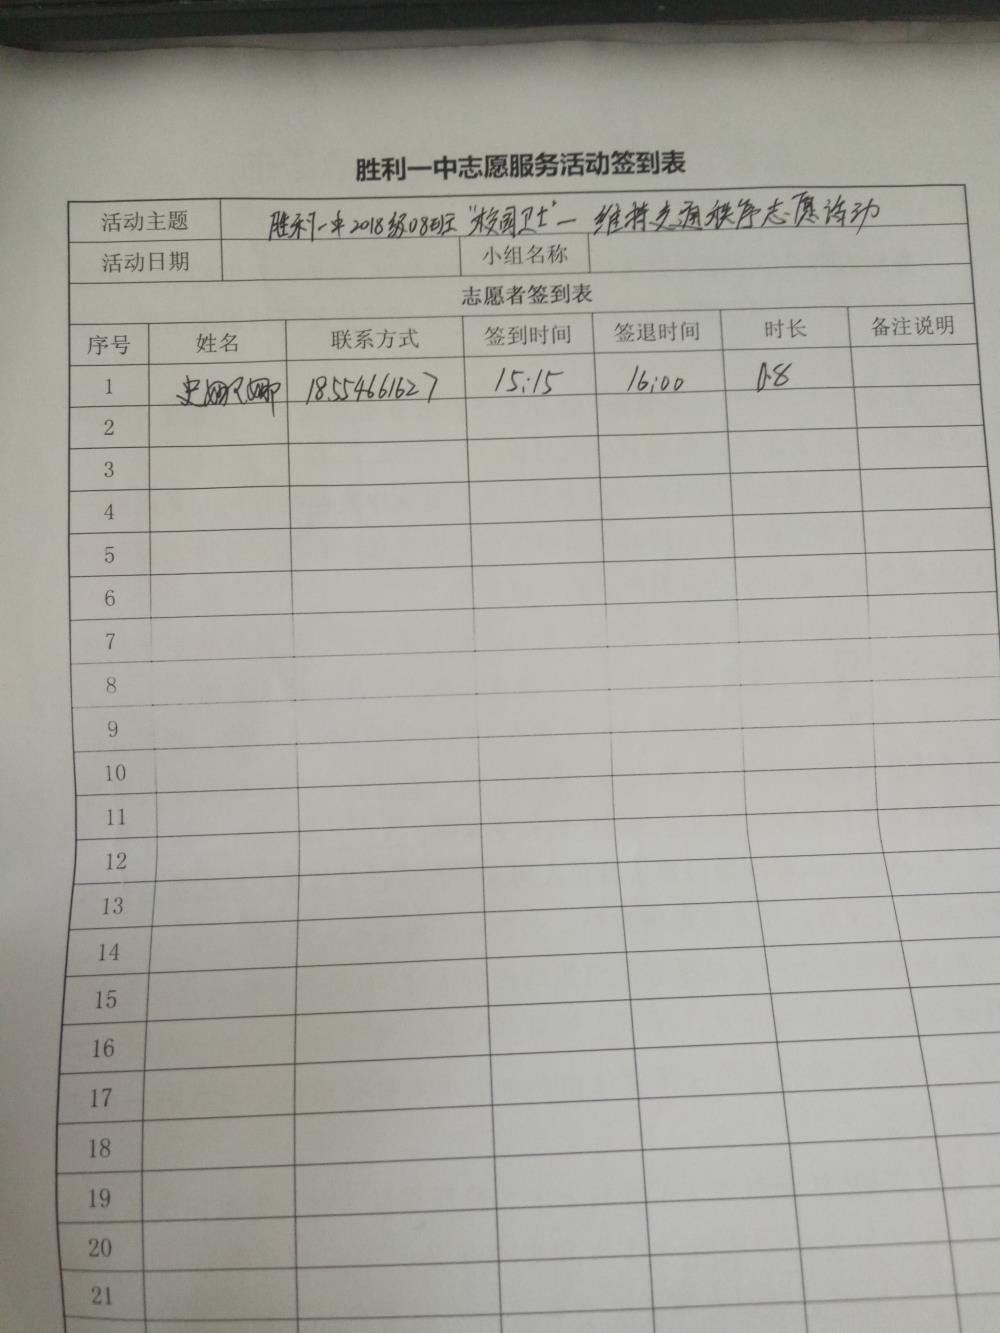 胜利一中志愿服务活动签到表
活动主题 胜利一中2018级08班“校园卫士”—维持交通秩序志愿活动
活动日期 小组名称
志愿者签到表
序号 姓名 联系方式 签到时间 签退时间 时长 备注说明
1 史娜娜 18554661627 15:15 16:00 0.8
2
3
4
5
6
7
8
9
10
11
12
13
14
15
16
17
18
19
20
21